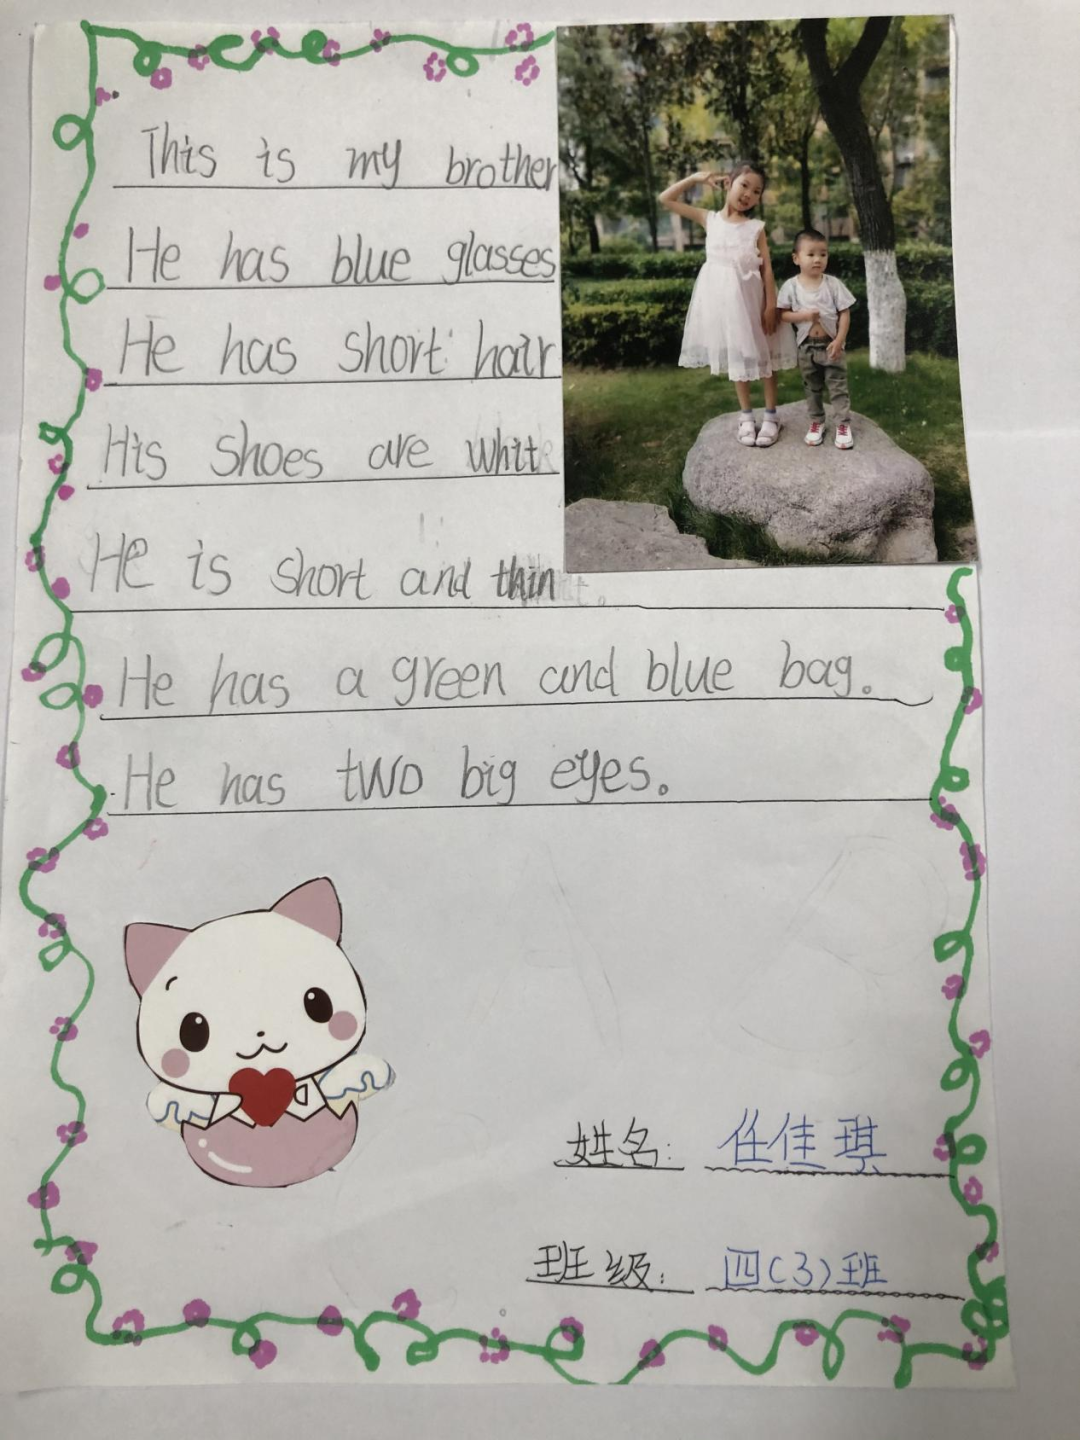 This is my brother
He has blue glasses
He has short hair
His shoes are white
He is short and thin
He has a green and blue bag.
He has two big eyes.
姓名: 任佳琪
班级: 四(3)班